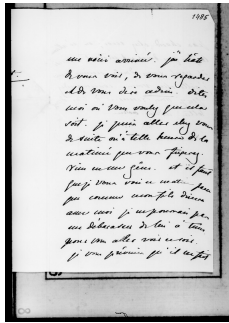 1485
me voici arrivé. j'ai hâte
de vous voir, de vous regarder
et de vous dire adieu. dites
moi où vous voulez que cela
soit. je puis aller chez vous
de suite ou à telle heure de la
matinée que vous fixerez.
rien ne me gêne. et il faut
que je vous voie ce matin
que comme mon fils dinera
avec moi je ne pourrai pas
me débarrasser de lui à tems
pour vous aller voir ce soir.
je vous préviens qu'il ne faut